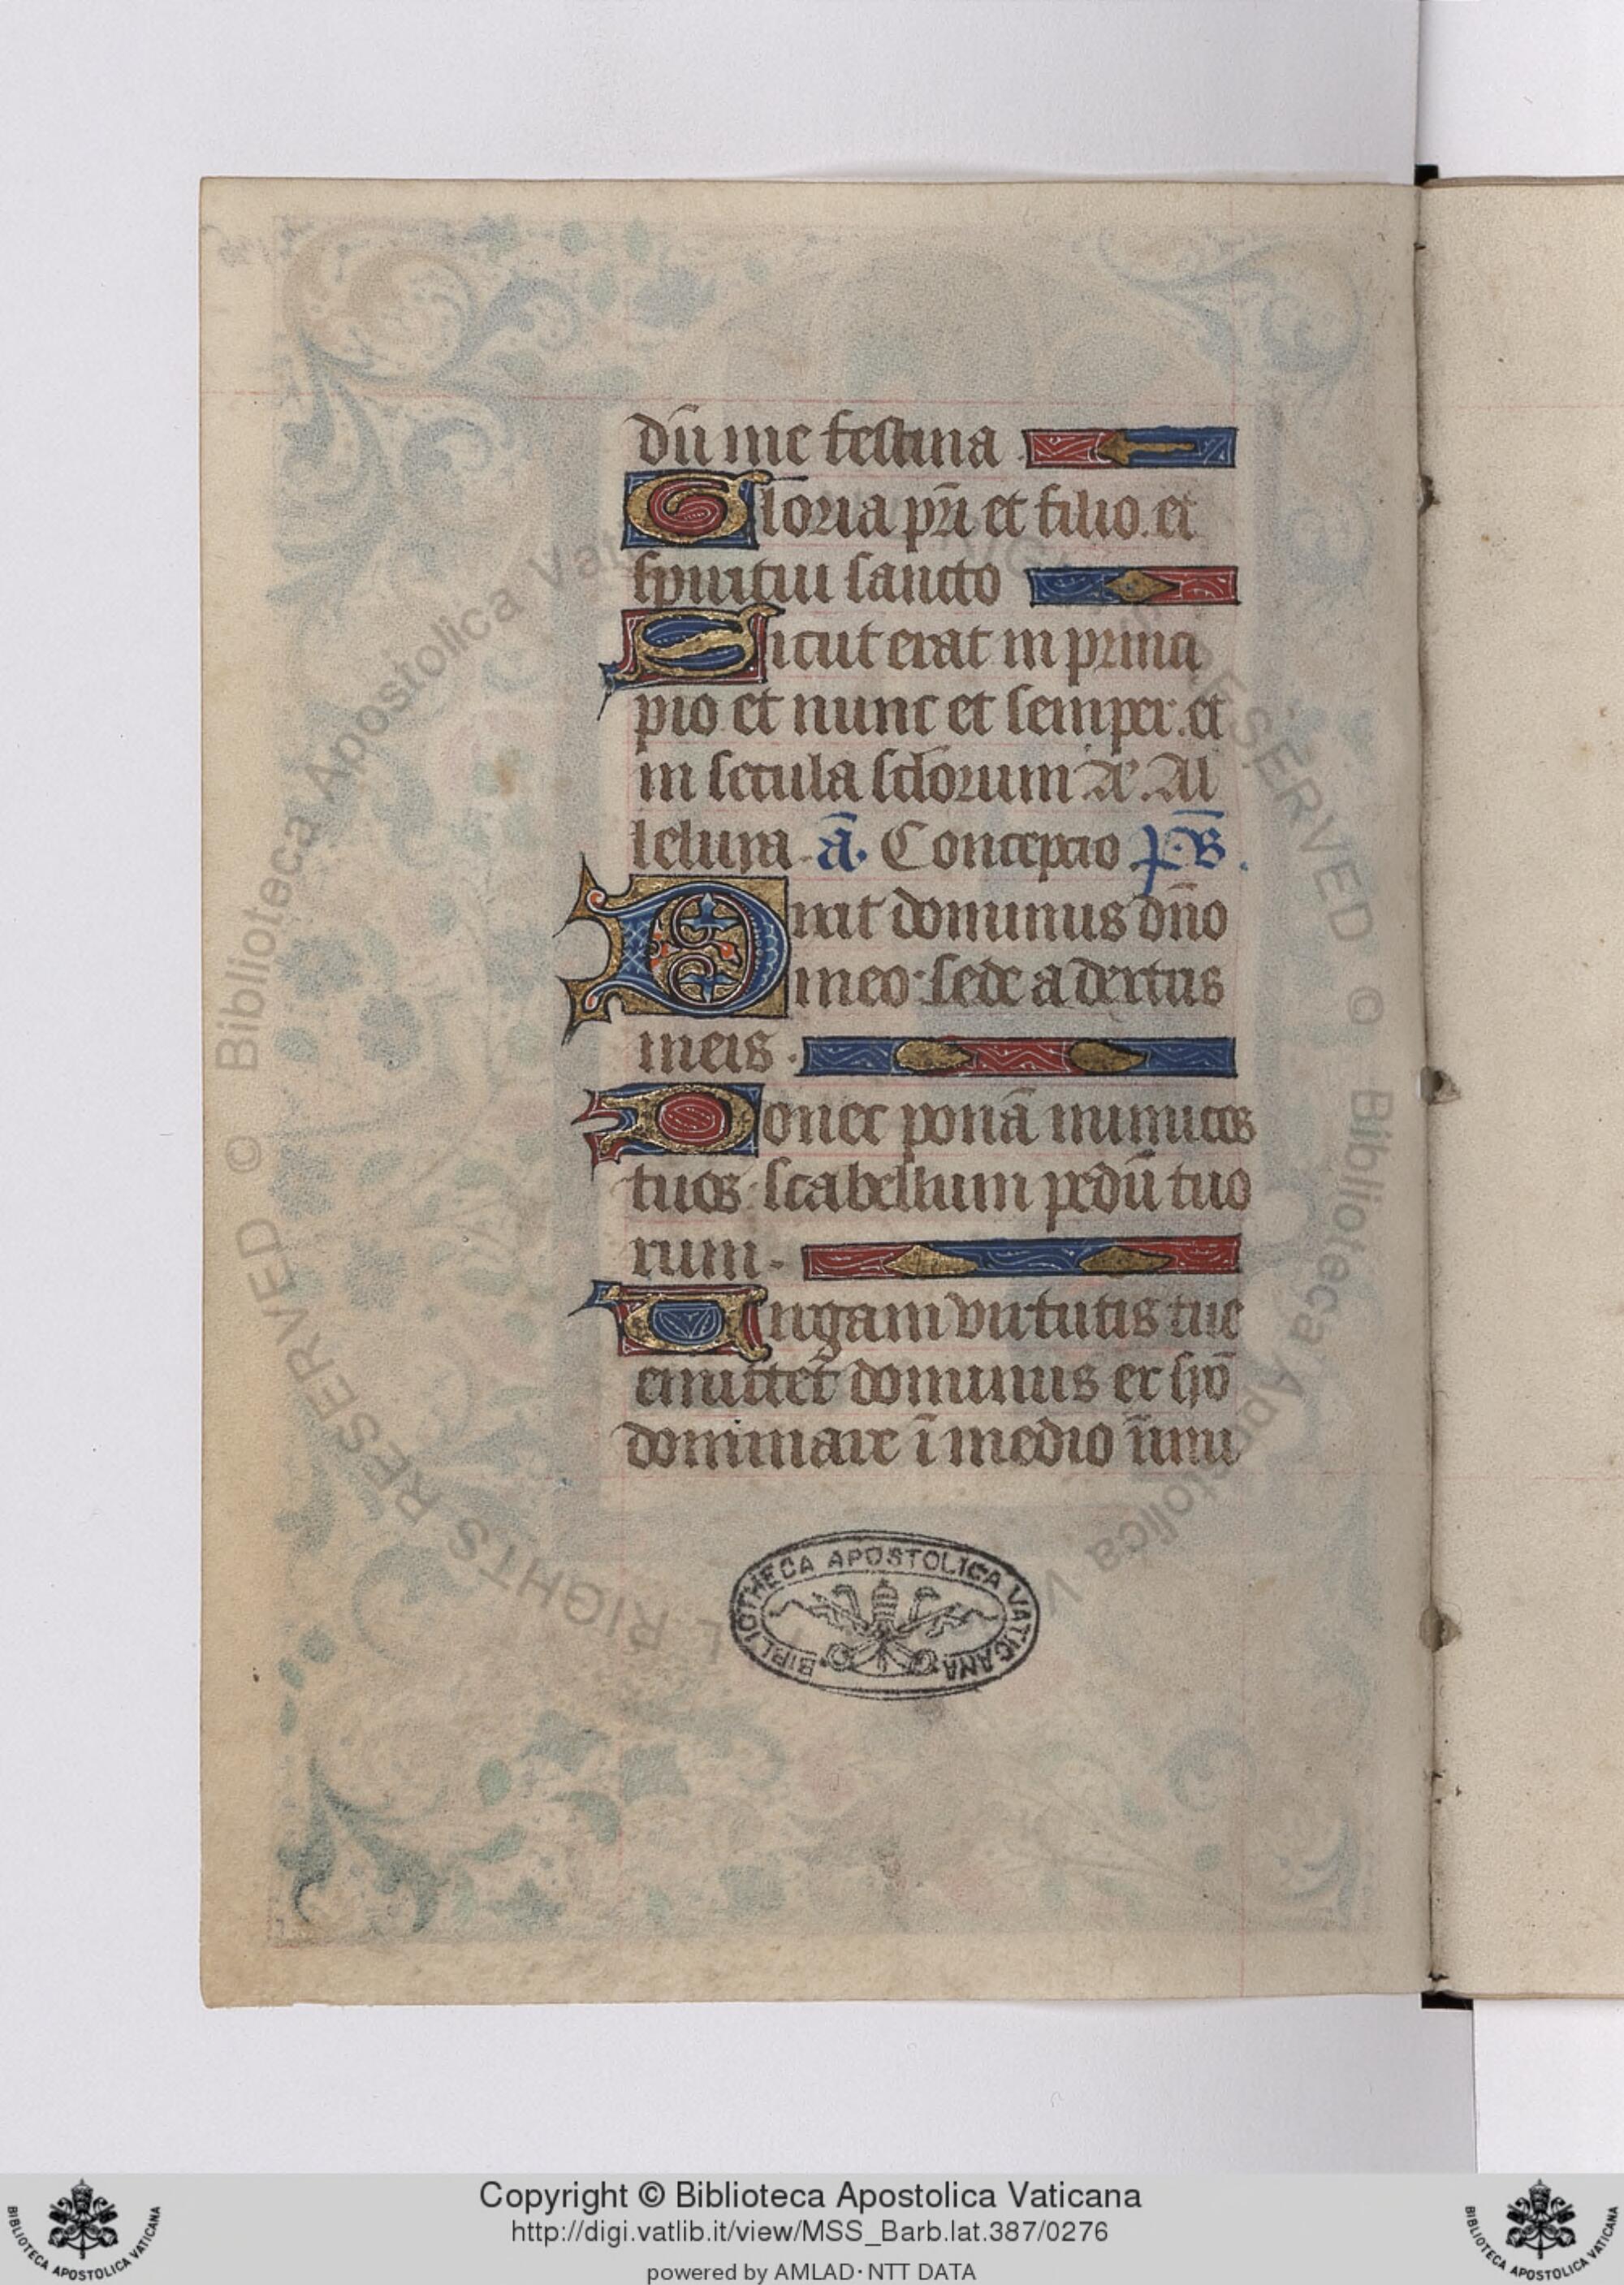 dū me festina
Gloria pr̄i et filio. et
spiritui sancto
Sicut erat in princi
pio et nunc et semper. et
in secula sclorum Ae. Al
leluya. ā. Concepcio p̄. B̄.
Dixit dominus dn̄o
meo: sede a dextris
meis.
Donec ponā inimicos
tuos: scabellum pedū tuo
rum.
Virgam virtutis tue
emittet dominus ex syō
dominare ī medio inimi
BIBLIOTHECA APOSTOLICA VATICANA
© Biblioteca Apostolica Vaticana
ALL RIGHTS RESERVED
Copyright © Biblioteca Apostolica Vaticana
http://digi.vatlib.it/view/MSS_Barb.lat.387/0276
powered by AMLAD·NTT DATA
BIBLIOTECA APOSTOLICA VATICANA
BIBLIOTECA APOSTOLICA VATICANA